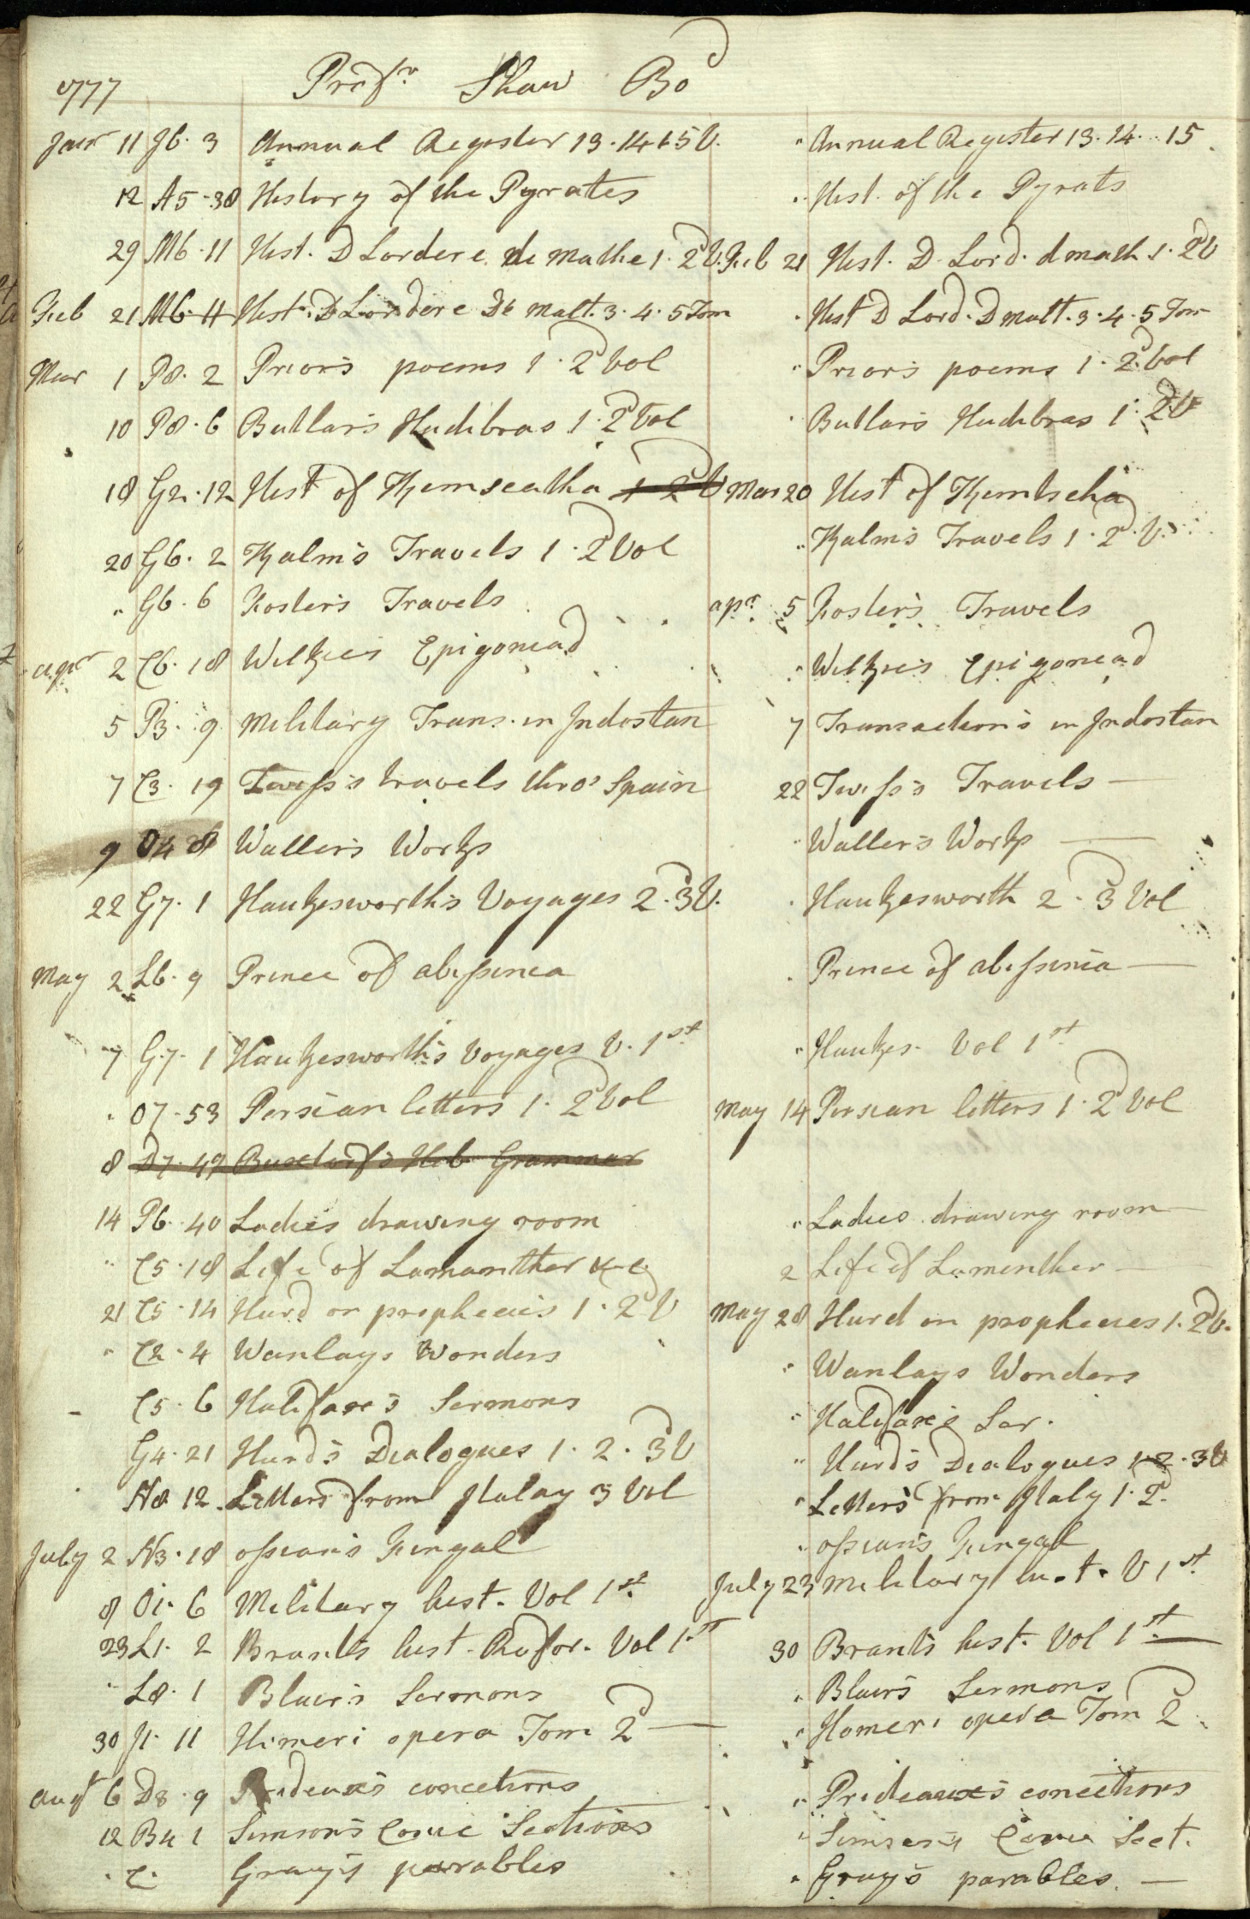 1777 Profr Shaw Bod
Janr 11 J6. 3 Annual Register 13. 14 & 5 V. " Annual Register 13. 14. 15
12 A5. 38 History of the Pyrates " Hist. of the Pyrats
29 M6. 11 Hist. D Lordere de Mathe 1. 2d V. Feb 21 Hist. D. Lord. d math 1. 2d V
Feb 21 M6. 11 Hist. D Lordere De Malt. 3. 4. 5 Tom " Hist D Lord. D malt. 3. 4. 5 Tom
Mar 1 P8. 2 Priors poems 1. 2d Vol " Priors poems 1. 2d Vol
10 P8. 6 Butlars Hudibras 1. 2d Vol " Butlars Hudibras 1. 2d V
18 G2. 12 Hist of Kemscatka 1 2d V Mar 20 Hist of Kemtscha
20 G6. 2 Kalm's Travels 1. 2d Vol " Kalms Travels 1. 2d V.
" G6. 6 Foster's Travels apr. 5 Foster's Travels
apr 2 C6. 18 Wilkies Epigoniad " Wilkies Epigoniad
5 P3. 9 Military Trans. in Indostan 7 Transactions in Indostan
7 C3. 19 Twiss's travels thro' Spain 22 Twiss's Travels —
9 O4 8 Waller's Works " Waller's Works —
22 G7. 1 Haukesworth's Voyages 2. 3d V. " Haukesworth 2. 3d Vol
May 2 L6. 9 Prince of abissinia " Prince of abissinia —
7 G7. 1 Haukesworth's Voyages V. 1st " Haukes. Vol 1st
" O7. 53 Persian letters 1. 2d Vol May 14 Persian letters 1. 2d Vol
8 D7. 49 Buxtorf's Heb Grammar
14 P6. 40 Ladies drawing room " Ladies drawing room —
" C5. 18 Life of Lamanther &c 2 Life of Lamenther —
21 C5. 14 Hurd on prophecies 1. 2d V May 28 Hurd on prophecies 1. 2d V.
" C2. 4 Wanlays Wonders " Wanlays Wonders
C5. 6 Halifaxe's Sermons " Halifaxe's Ser.
G4. 21 Hurd's Dialogues 1. 2. 3d V " Hurd's Dialogues 1. 2. 3d V
N8 12. Letters from Italay 3 Vol " Letters from Italy 1. 2d.
July 2 N3. 18 ossian's Fingal " ossian's Fingal
8 O1. 6 Military hist. Vol 1st July 23 Military hist. V 1st
23 L1. 2 Brants hist. Refor. Vol 1st 30 Brants hist. Vol 1st —
" L8. 1 Blair's Sermons " Blair's Sermons
30 J1. 11 Homeri opera Tom 2d — " Homeri opera Tom 2d
augt 6 D8. 9 Prideaux's conections " Prideauxe's conections
12 B4 1 Simson's Conic Sections " Simson's Conic Sect.
" C. Gray's parables " Gray's parables. —